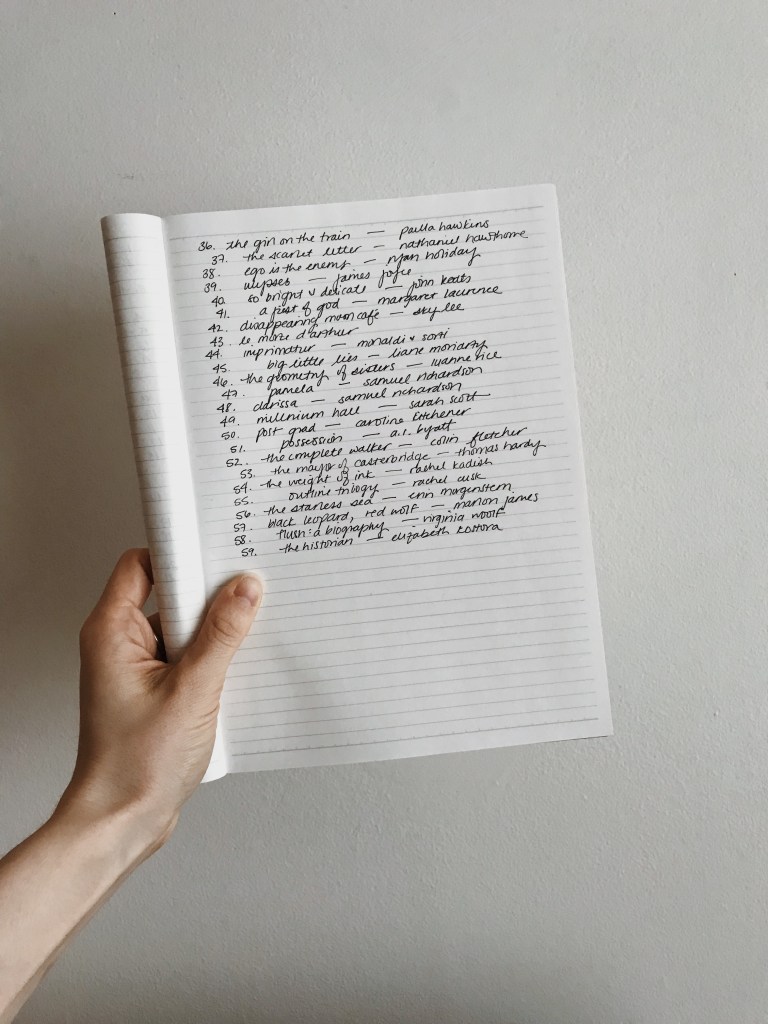 36. the girl on the train — paula hawkins
37. the scarlet letter — nathaniel hawthorne
38. ego is the enemy — ryan holiday
39. ulysses — james joyce
40. so bright & delicate — john keats
41. a jest of god — margaret laurence
42. disappearing moon cafe — sky lee
43. le morte d'arthur
44. imprimatur — monaldi & sorti
45. big little lies — liane moriarty
46. the geometry of sisters — luanne rice
47. pamela — samuel richardson
48. clarissa — samuel richardson
49. millenium hall — sarah scott
50. post grad — caroline kitchener
51. possession — a.s. byatt
52. the complete walker — colin fletcher
53. the mayor of casterbridge — thomas hardy
54. the weight of ink — rachel kadish
55. outline trilogy — rachel cusk
56. the starless sea — erin morgenstern
57. black leopard, red wolf — marlon james
58. flush: a biography — virginia woolf
59. the historian — elizabeth kostova